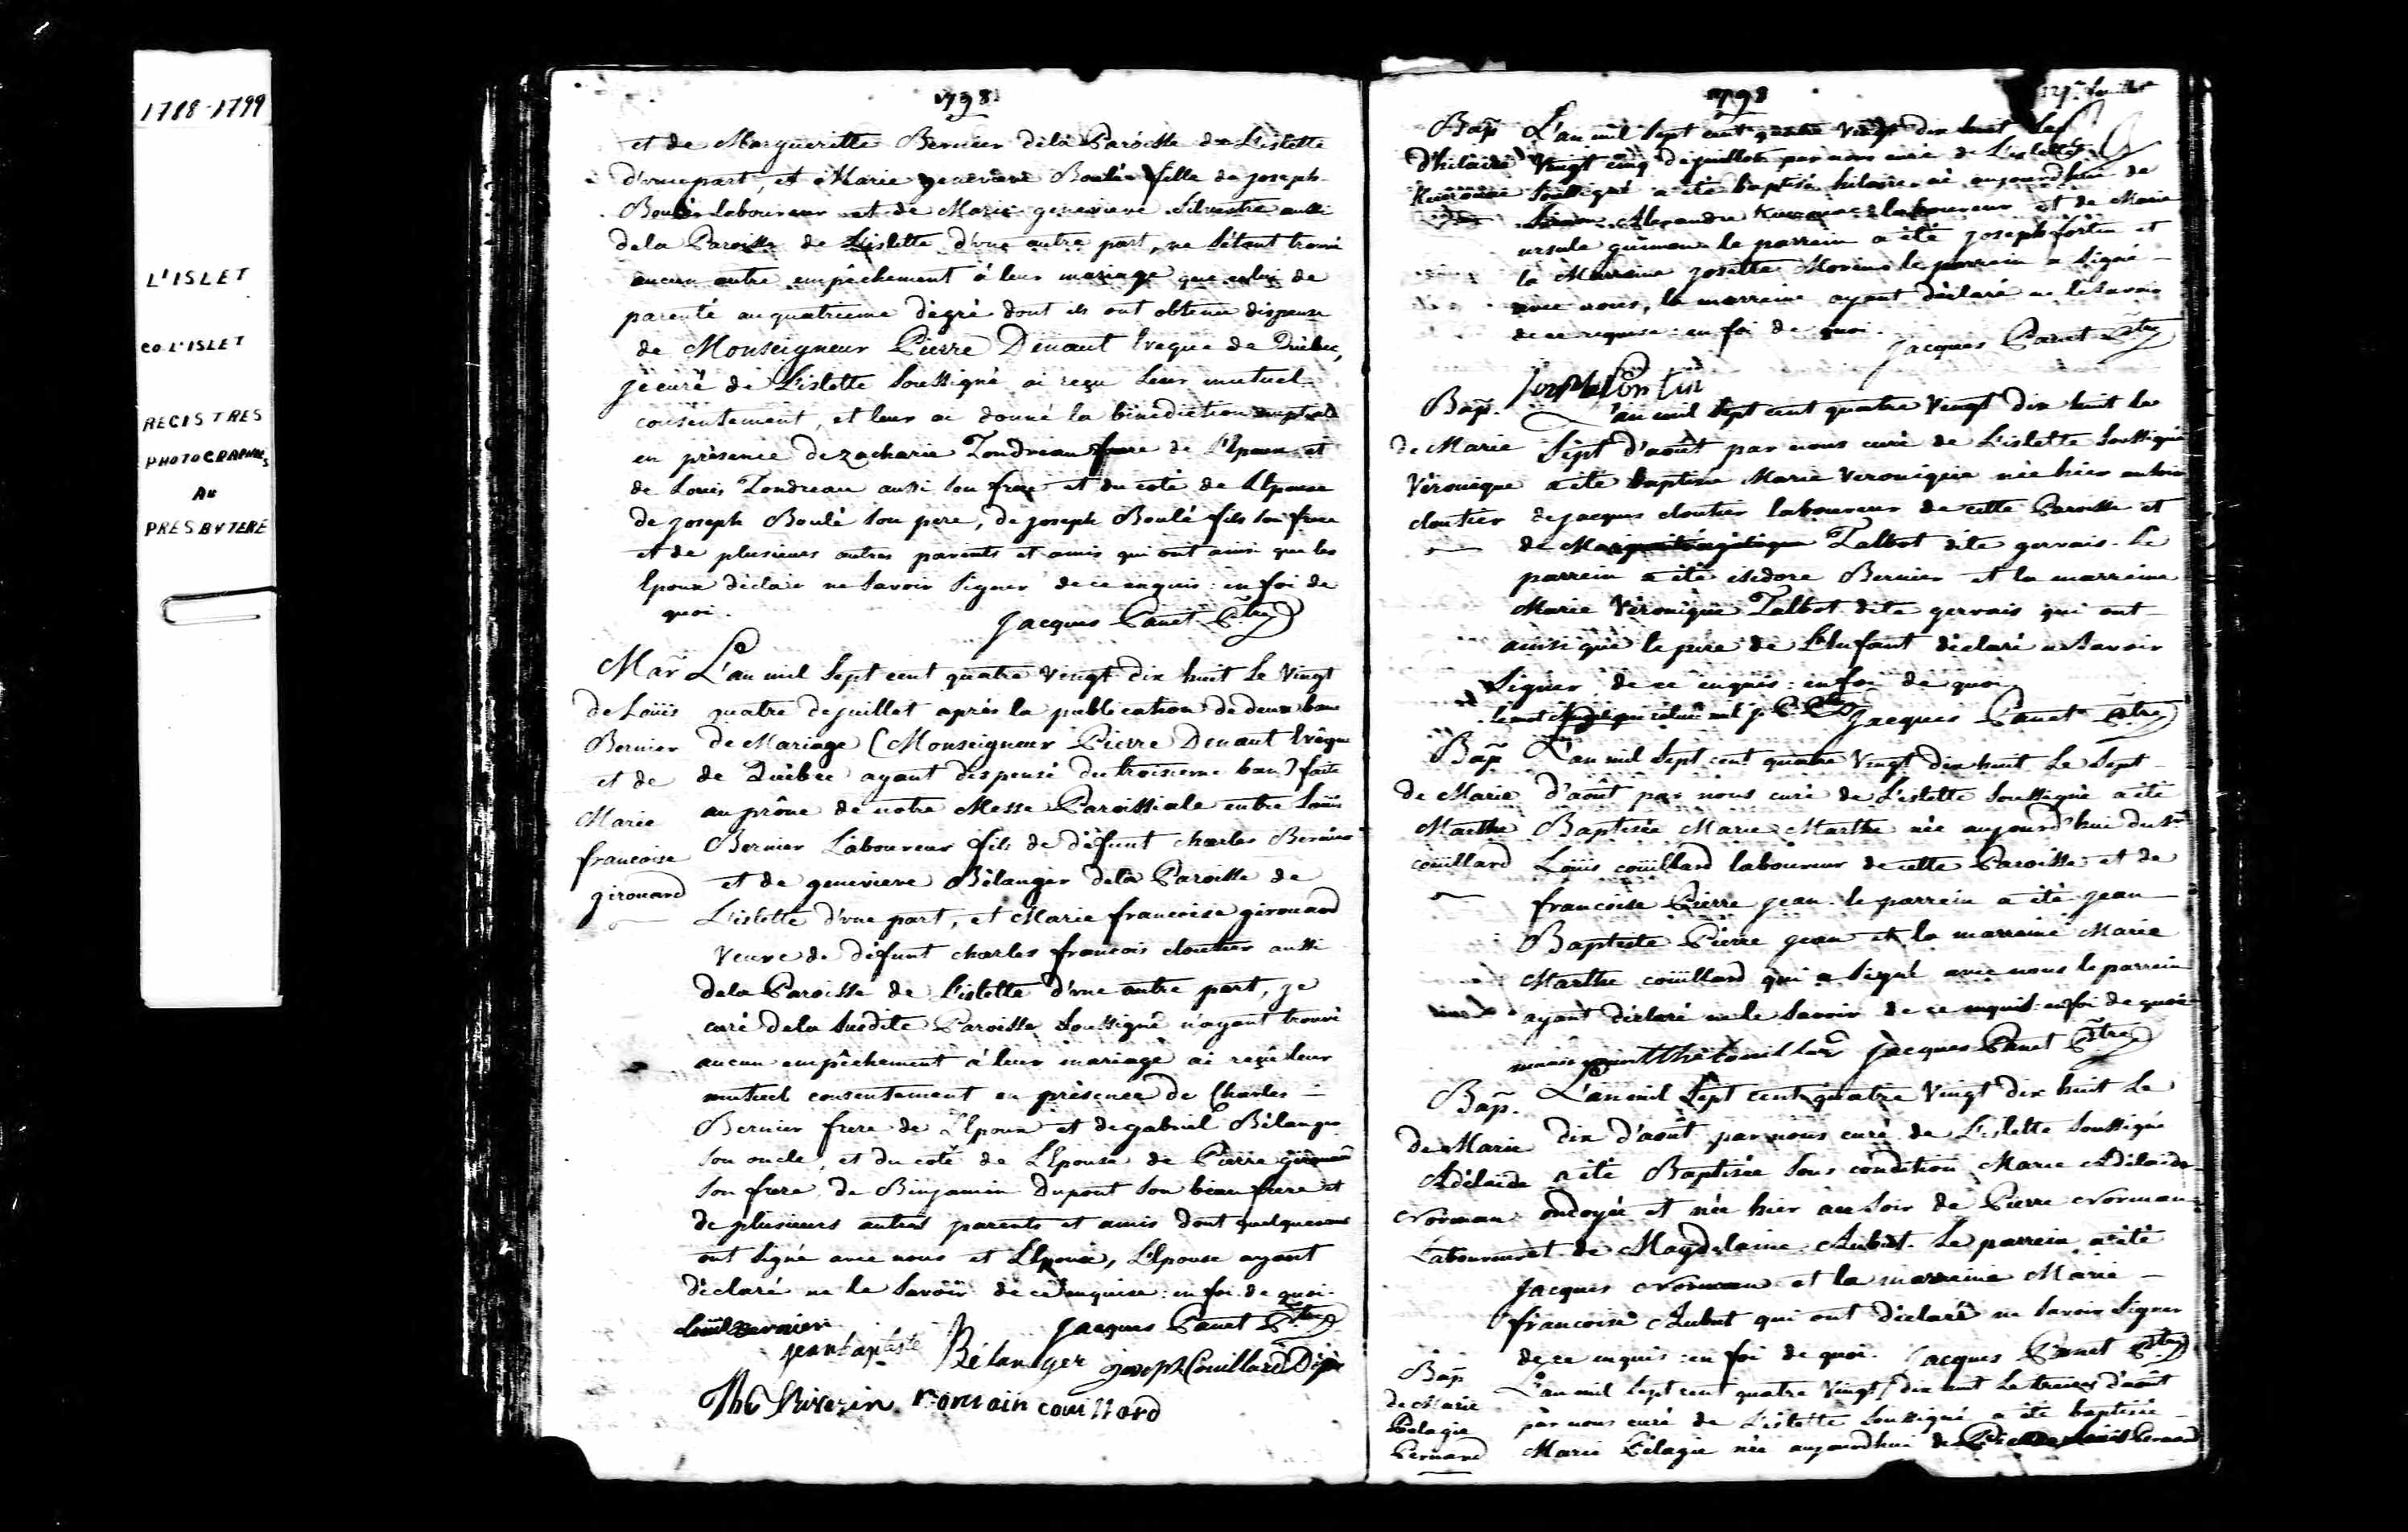 1788-1799
L'ISLET
CO. L'ISLET
REGISTRES
PHOTOGRAPHIÉS
AU
PRESBYTERE
1798
et de Margueritte Bernier dela Paroisse de L'islette
d'une part, et Marie genevieve Boulé fille de joseph
Boulé Laboureur et de Marie genevieve Silvestre aussi
dela Paroisse de L'islette d'une autre part, ne s'étant trouvé
aucun autre empêchement à leur mariage que celui de
parenté au quatrieme dégré dont ils ont obtenu dispense
de Monseigneur Pierre Denaut Evêque de Québec,
je curé de L'islette soussigné ai reçu leur mutuel
consentement, et leur ai donné la bénédiction nuptiale
en présence de zacharie Tondreau frere de l'Epoux et
de Louis Tondreau aussi son frere et du coté de L'Epouse
de joseph Boulé son pere, de joseph Boulé fils son frere
et de plusieurs autres parents et amis qui ont ainsi que les
Epoux déclaré ne savoir signer de ce enquis : en foi de
quoi. Jacques Panet Ptre
Mar L'an mil sept cent quatre vingt dix huit le vingt
de Loüis quatre de juillet après la publication de deux bans
Bernier de Mariage (Monseigneur Pierre Denaut Evêque
et de de Québec ayant dispensé du troisieme ban) faite
Marie au prône de notre Messe Paroissiale entre Loüis
francoise Bernier Laboureur fils de défunt charles Bernier
girouard et de genevieve Bélanger dela Paroisse de
L'islette d'une part, et Marie francoise girouard
veuve de défunt charles francois cloutier aussi
dela Paroisse de L'islette d'une autre part, je
curé dela susdite Paroisse soussigné n'ayant trouvé
aucun empêchement à leur mariage ai reçu leur
mutuel consentement en présence de Charles
Bernier frere de L'Epoux et de gabriel Bélanger
son oncle, et du coté de L'Epouse de Pierre girouard
son frere, de Binjamin Dupont son beau frere et
de plusieurs autres parents et amis dont quelques uns
ont signé avec nous et L'Epoux, L'Epouse ayant
déclaré ne le savoir de ce enquise : en foi de quoi.
Louis Bernier Jacques Panet Ptre
jean baptiste Bélanger joseph Couillard
romain couillard
1798
Bap L'an mil sept cent quatre vingt dix huit le
d'hilaire vingt cinq de juillet par nous curé de L'islette
soussigné a été baptisé hilaire né aujourd'hui de
Simon Alexandre laboureur et de Marie
ursule guimon le parrein a été joseph fortin et
la Marreine josette Morin le parrein a signé
avec nous, la marreine ayant déclaré ne le savoir
de ce requise : en foi de quoi. Jacques Panet Ptre
Joseph fortin
Bap. L'an mil sept cent quatre vingt dix huit le
de Marie sept d'août par nous curé de L'islette soussigné
Véronique a été baptisée Marie Veronique née hier au soir
cloutier de jacques cloutier laboureur de cette Paroisse et
de Talbot dite gervais. Le
parrein a été isidore Bernier et la marreine
Marie Véronique Talbot dite gervais qui ont
ainsi que le pere de L'Enfant déclaré ne savoir
signer de ce enquis : en foi de quoi
le mot Angelique raturé nul J. P. Ptre Jacques Panet Ptre
Bap L'an mil sept cent quatre vingt dix huit le sept
de Marie d'août par nous curé de L'islette soussigné a été
Marthe Baptisée Marie Marthe née aujourd'hui du Sr
coüillard Loüis coüillard laboureur de cette Paroisse et de
francoise Pierre jean. le parrein a été jean
Baptiste Pierre jean et la marreine Marie
Marthe coüillard qui a signé avec nous le parrein
ayant déclaré ne le savoir de ce enquis : en foi de quoi
Jacques Panet Ptre
Bap. L'an mil sept cent quatre vingt dix huit le
de Marie dix d'août par nous curé de L'islette soussigné
Adélaïde a été Baptisée sous condition Marie Adélaïde
Norman ondoyée et née hier au soir de Pierre Norman
Laboureur et de Magdelaine Aubut. Le parrein a été
jacques Norman et la marreine Marie
francoise Aubut qui ont déclaré ne savoir signer
de ce enquis : en foi de quoi. Jacques Panet Ptre
Bap L'an mil sept cent quatre vingt dix huit le treize d'août
de Marie par nous curé de L'islette soussigné a été baptisée
Pelagie Marie Pélagie née aujourdhui de